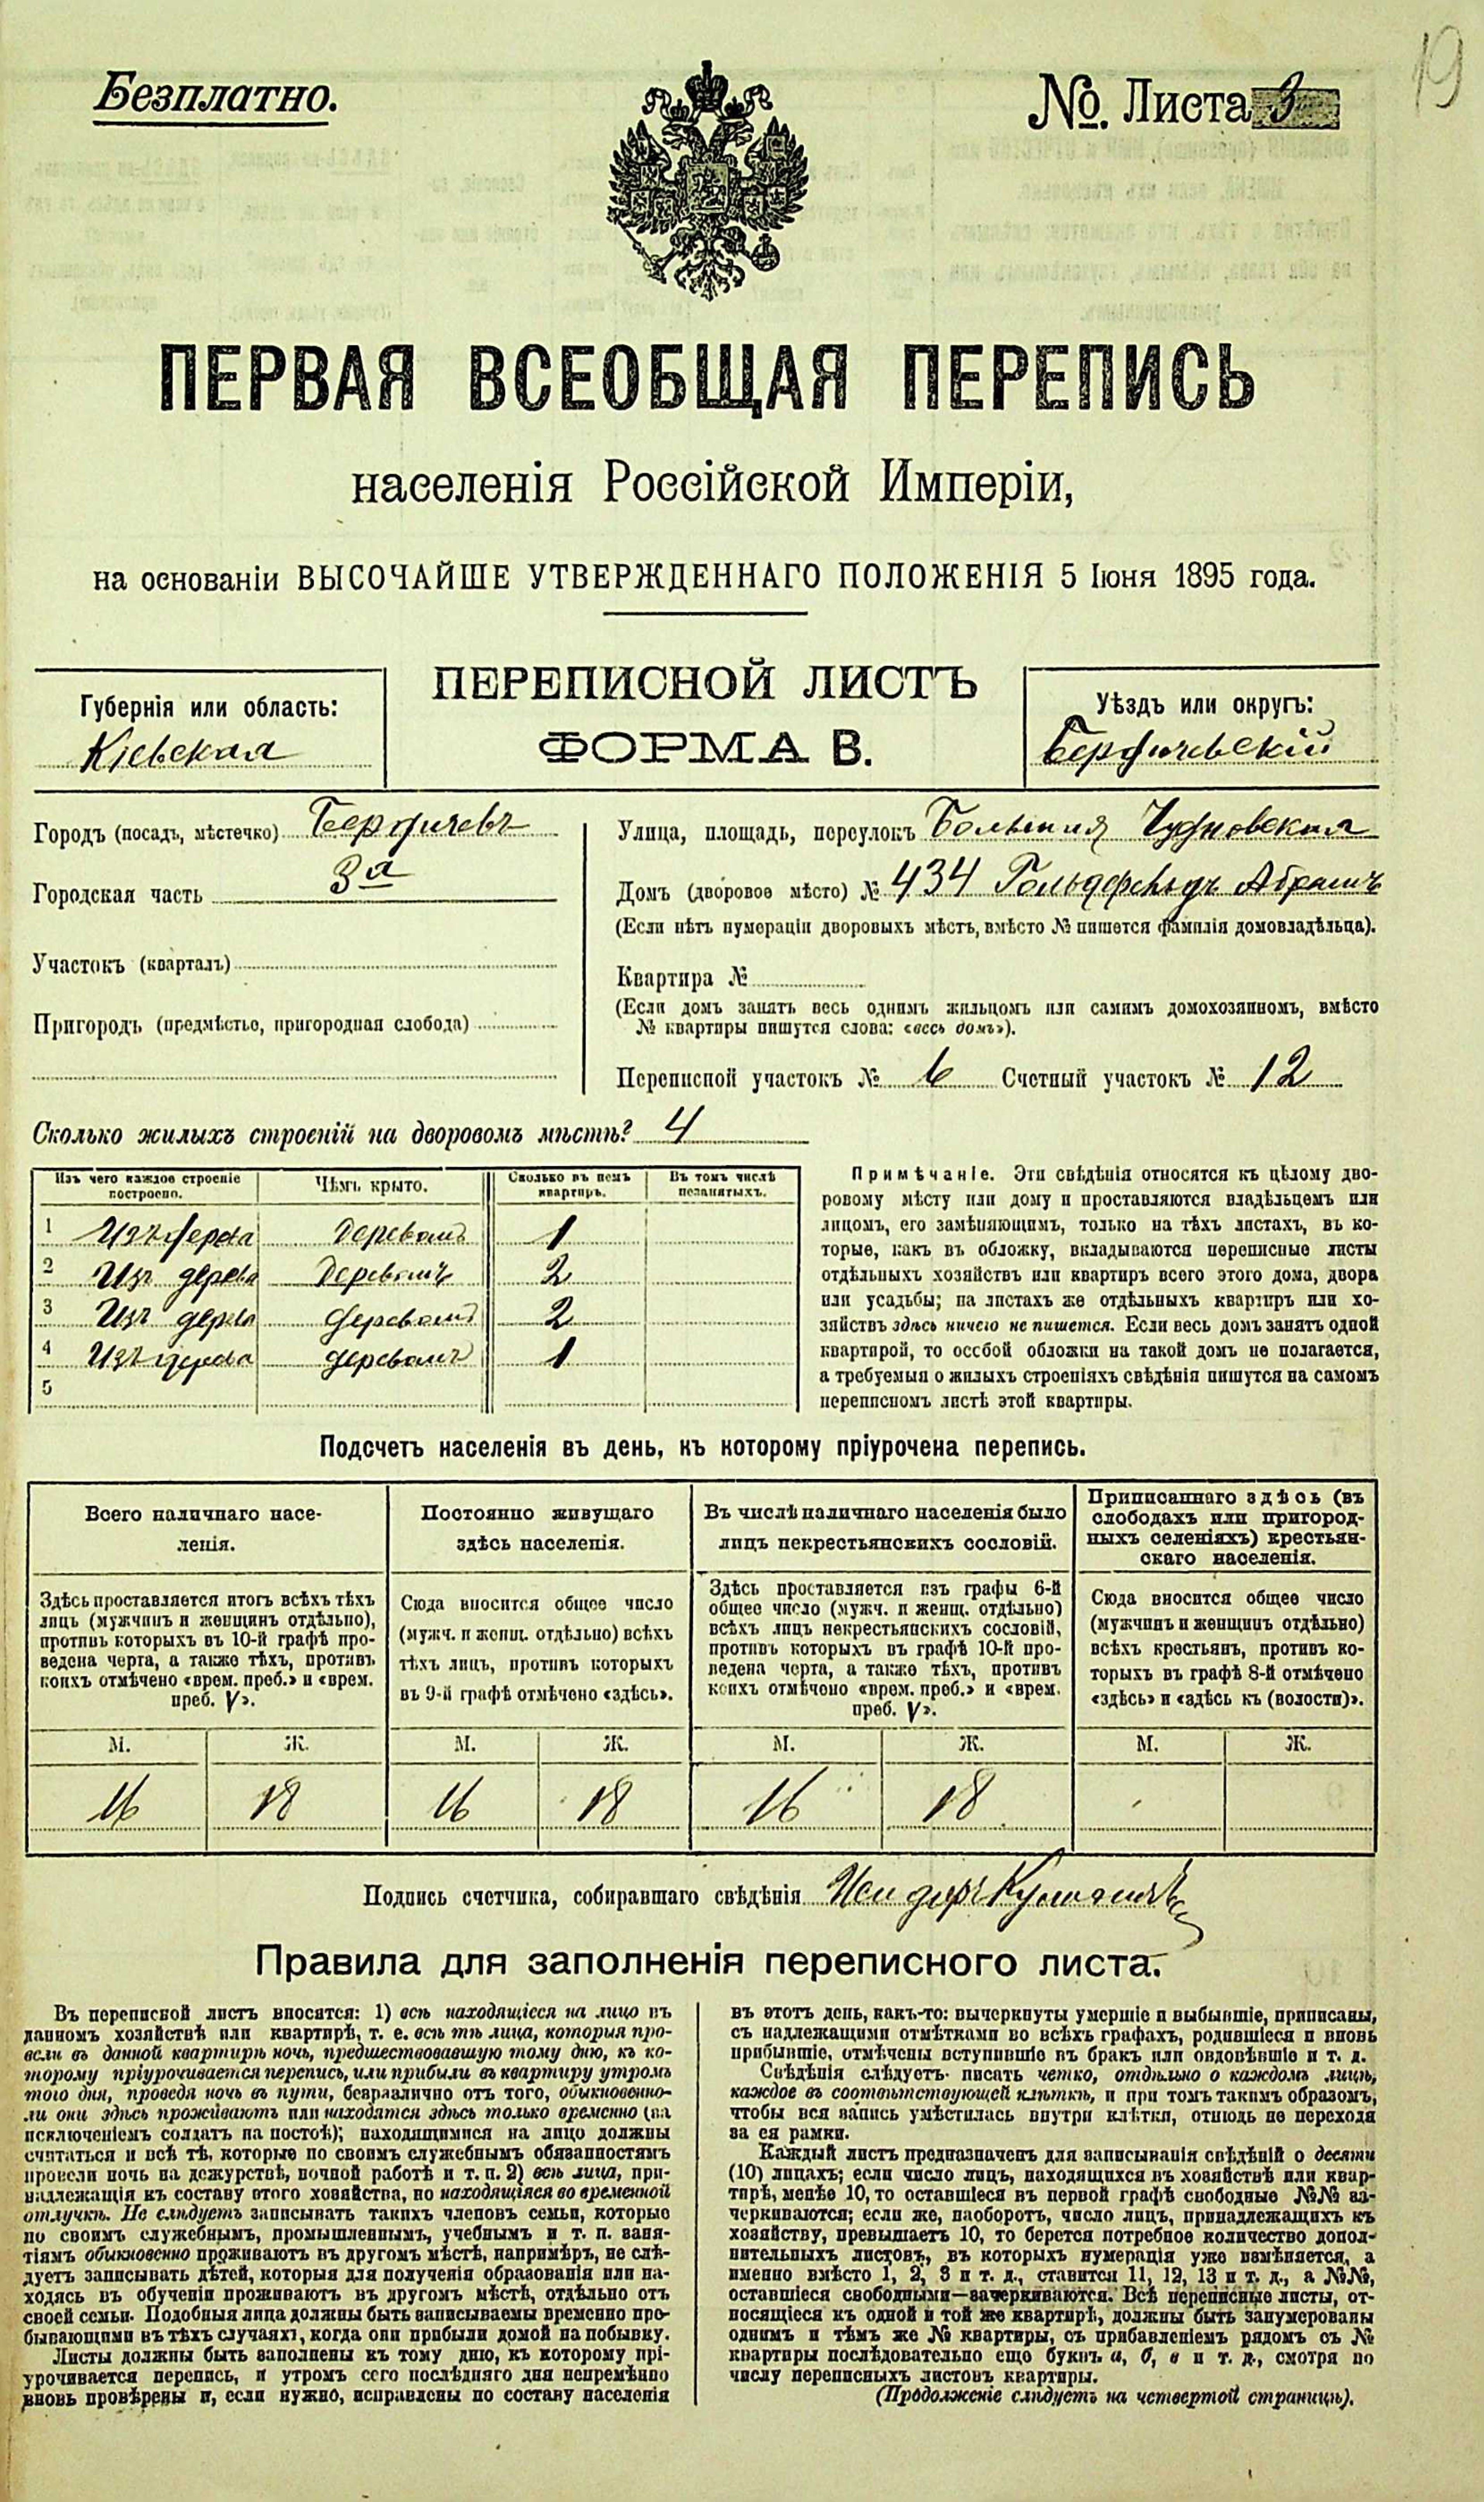 19
Безплатно.
№. Листа 3
ПЕРВАЯ ВСЕОБЩАЯ ПЕРЕПИСЬ
населенія Россійской Имперіи,
на основаніи ВЫСОЧАЙШЕ УТВЕРЖДЕННАГО ПОЛОЖЕНІЯ 5 Іюня 1895 года.
Губернія или область:
Кіевская
ПЕРЕПИСНОЙ ЛИСТЪ
ФОРМА В.
Уѣздъ или округъ:
Бердичевскій
Городъ (посадъ, мѣстечко) Бердичевъ
Городская часть 3я
Участокъ (кварталъ)
Пригородъ (предмѣстье, пригородная слобода)
Улица, площадь, переулокъ Большая Чудновская
Домъ (дворовое мѣсто) № 434 Гольденбергъ Абрамъ
(Если нѣтъ нумераціи дворовыхъ мѣстъ, вмѣсто № пишется фамилія домовладѣльца).
Квартира №
(Если домъ занятъ весь однимъ жильцомъ или самимъ домохозяиномъ, вмѣсто
№ квартиры пишутся слова: «весь домъ»).
Переписной участокъ № 6 Счетный участокъ № 12
Сколько жилыхъ строеній на дворовомъ мѣстѣ? 4
Изъ чего каждое строеніе построено. Чѣмъ крыто. Сколько въ немъ квартиръ. Въ томъ числѣ незанятыхъ.
1 Изъ дерева деревомъ 1
2 Изъ дерева деревомъ 2
3 Изъ дерева деревомъ 2
4 Изъ дерева деревомъ 1
5
Примѣчаніе. Эти свѣдѣнія относятся къ цѣлому дво-
ровому мѣсту или дому и проставляются владѣльцемъ или
лицомъ, его замѣняющимъ, только на тѣхъ листахъ, въ ко-
торые, какъ въ обложку, вкладываются переписные листы
отдѣльныхъ хозяйствъ или квартиръ всего этого дома, двора
или усадьбы; на листахъ же отдѣльныхъ квартиръ или хо-
зяйствъ здѣсь ничего не пишется. Если весь домъ занятъ одной
квартирой, то особой обложки на такой домъ не полагается,
а требуемыя о жилыхъ строеніяхъ свѣдѣнія пишутся на самомъ
переписномъ листѣ этой квартиры.
Подсчетъ населенія въ день, къ которому пріурочена перепись.
Всего наличнаго насе-
ленія.
Здѣсь проставляется итогъ всѣхъ тѣхъ
лицъ (мужчинъ и женщинъ отдѣльно),
противъ которыхъ въ 10-й графѣ про-
ведена черта, а также тѣхъ, противъ
коихъ отмѣчено «врем. преб.» и «врем.
преб. V».
Постоянно живущаго
здѣсь населенія.
Сюда вносится общее число
(мужч. и женщ. отдѣльно) всѣхъ
тѣхъ лицъ, противъ которыхъ
въ 9-й графѣ отмѣчено «здѣсь».
Въ числѣ наличнаго населенія было
лицъ некрестьянскихъ сословій.
Здѣсь проставляется изъ графы 6-й
общее число (мужч. и женщ. отдѣльно)
всѣхъ лицъ некрестьянскихъ сословій,
противъ которыхъ въ графѣ 10-й про-
ведена черта, а также тѣхъ, противъ
коихъ отмѣчено «врем. преб.» и «врем.
преб. V».
Приписаннаго здѣсь (въ
слободахъ или пригород-
ныхъ селеніяхъ) крестьян-
скаго населенія.
Сюда вносится общее число
(мужчинъ и женщинъ отдѣльно)
всѣхъ крестьянъ, противъ ко-
торыхъ въ графѣ 8-й отмѣчено
«здѣсь» и «здѣсь къ (волости)».
М. Ж. М. Ж. М. Ж. М. Ж.
16 18 16 18 16 18
Подпись счетчика, собиравшаго свѣдѣнія
Правила для заполненія переписного листа.
Въ переписной листъ вносятся: 1) всѣ находящіеся на лицо въ
данномъ хозяйствѣ или квартирѣ, т. е. всѣ тѣ лица, которыя про-
вели въ данной квартирѣ ночь, предшествовавшую тому дню, къ ко-
торому пріурочивается перепись, или прибыли въ квартиру утромъ
того дня, проведя ночь въ пути, безразлично отъ того, обыкновенно-
ли они здѣсь проживаютъ или находятся здѣсь только временно (за
исключеніемъ солдатъ на постоѣ); находящимися на лицо должны
считаться и всѣ тѣ, которые по своимъ служебнымъ обязанностямъ
провели ночь на дежурствѣ, ночной работѣ и т. п. 2) всѣ лица, при-
надлежащія къ составу этого хозяйства, но находящіяся во временной
отлучкѣ. Не слѣдуетъ записывать такихъ членовъ семьи, которые
по своимъ служебнымъ, промышленнымъ, учебнымъ и т. п. заня-
тіямъ обыкновенно проживаютъ въ другомъ мѣстѣ, напримѣръ, не слѣ-
дуетъ записывать дѣтей, которыя для полученія образованія или на-
ходясь въ обученіи проживаютъ въ другомъ мѣстѣ, отдѣльно отъ
своей семьи. Подобныя лица должны быть записываемы временно пре-
бывающими въ тѣхъ случаяхъ, когда они прибыли домой на побывку.
Листы должны быть заполнены къ тому дню, къ которому прі-
урочивается перепись, и утромъ сего послѣдняго дня непремѣнно
вновь провѣрены и, если нужно, исправлены по составу населенія
въ этотъ день, какъ-то: вычеркнуты умершіе и выбывшіе, приписаны,
съ надлежащими отмѣтками во всѣхъ графахъ, родившіеся и вновь
прибывшіе, отмѣчены вступившіе въ бракъ или овдовѣвшіе и т. д.
Свѣдѣнія слѣдуетъ писать четко, отдѣльно о каждомъ лицѣ,
каждое въ соотвѣтствующей клѣткѣ, и при томъ такимъ образомъ,
чтобы вся запись умѣстилась внутри клѣтки, отнюдь не переходя
за ея рамки.
Каждый листъ предназначенъ для записыванія свѣдѣній о десяти
(10) лицахъ; если число лицъ, находящихся въ хозяйствѣ или квар-
тирѣ, менѣе 10, то оставшіеся въ первой графѣ свободные №№ за-
черкиваются; если же, наоборотъ, число лицъ, принадлежащихъ къ
хозяйству, превышаетъ 10, то берется потребное количество допол-
нительныхъ листовъ, въ которыхъ нумерація уже измѣняется, а
именно вмѣсто 1, 2, 3 и т. д., ставится 11, 12, 13 и т. д., а №№,
оставшіеся свободными—зачеркиваются. Всѣ переписные листы, от-
носящіеся къ одной и той же квартирѣ, должны быть занумерованы
однимъ и тѣмъ же № квартиры, съ прибавленіемъ рядомъ съ №
квартиры послѣдовательно еще буквъ а, б, в и т. д., смотря по
числу переписныхъ листовъ квартиры.
(Продолженіе слѣдуетъ на четвертой страницѣ).